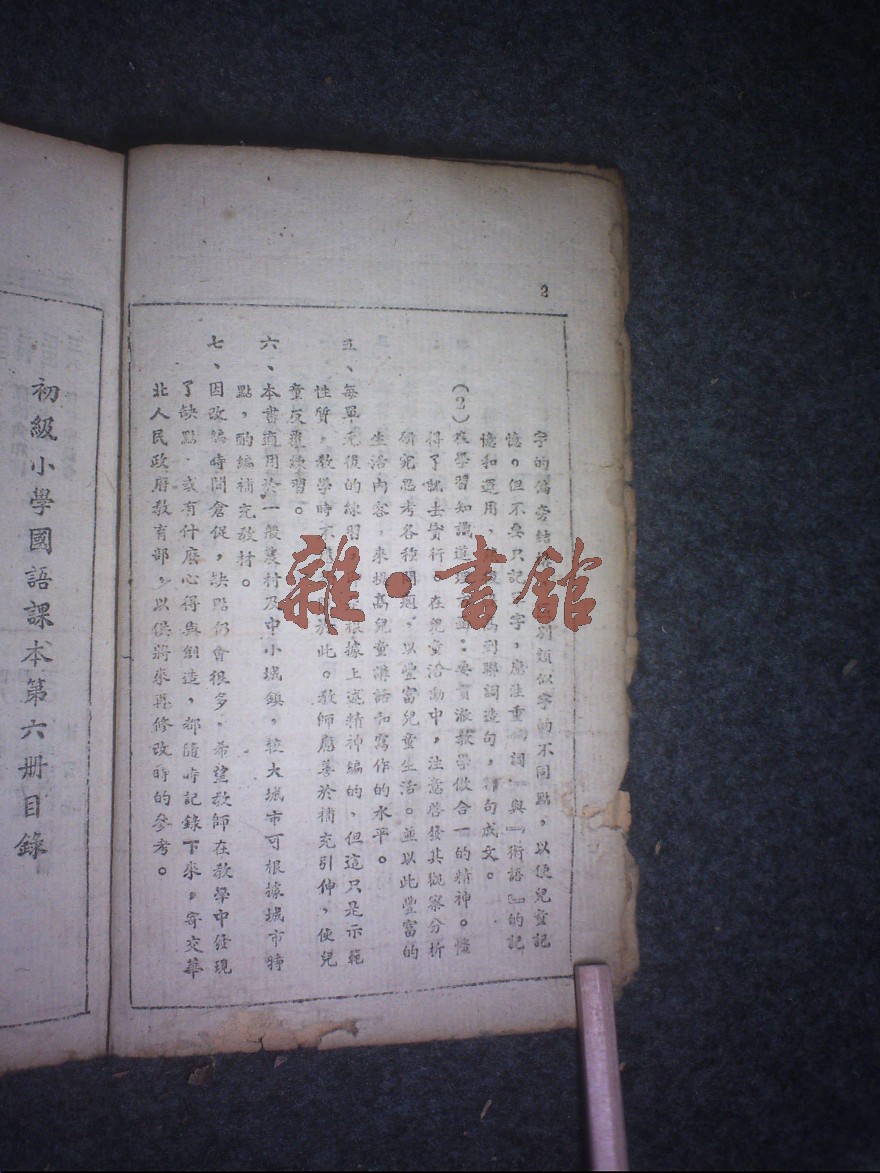 2
字的偏旁結
別類似字的不同點，以便兒童記
憶。但不要只記
字，應注重『詞』與『術語』的記
憶和運用、
到聯詞造句，
句成文。
(2)在學習知識道理
：要貫澈教學做合一的精神。懂
得了就去實行，在兒童活動中，注意啓發其觀察分析
研究思考各種問題，以豐富兒童生活。並以此豐富的
生活內容，來提高兒童講話和寫作的水平。
五、每單元後的練習
根據上述精神編的，但這只是示範
性質，教學時不
於此。教師應善於補充引伸，使兒
童反覆練習。
六、本書適用於一般農村及中小城鎮，較大城市可根據城市特
點，酌編補充教材。
七、因改編時間倉促，缺點仍會很多，希望教師在教學中發現
了缺點，或有什麽心得與創造，都隨時記錄下來，寄交華
北人民政府教育部，以供將來再修改時的參考。
初級小學國語課本第六册目錄
雜·書館